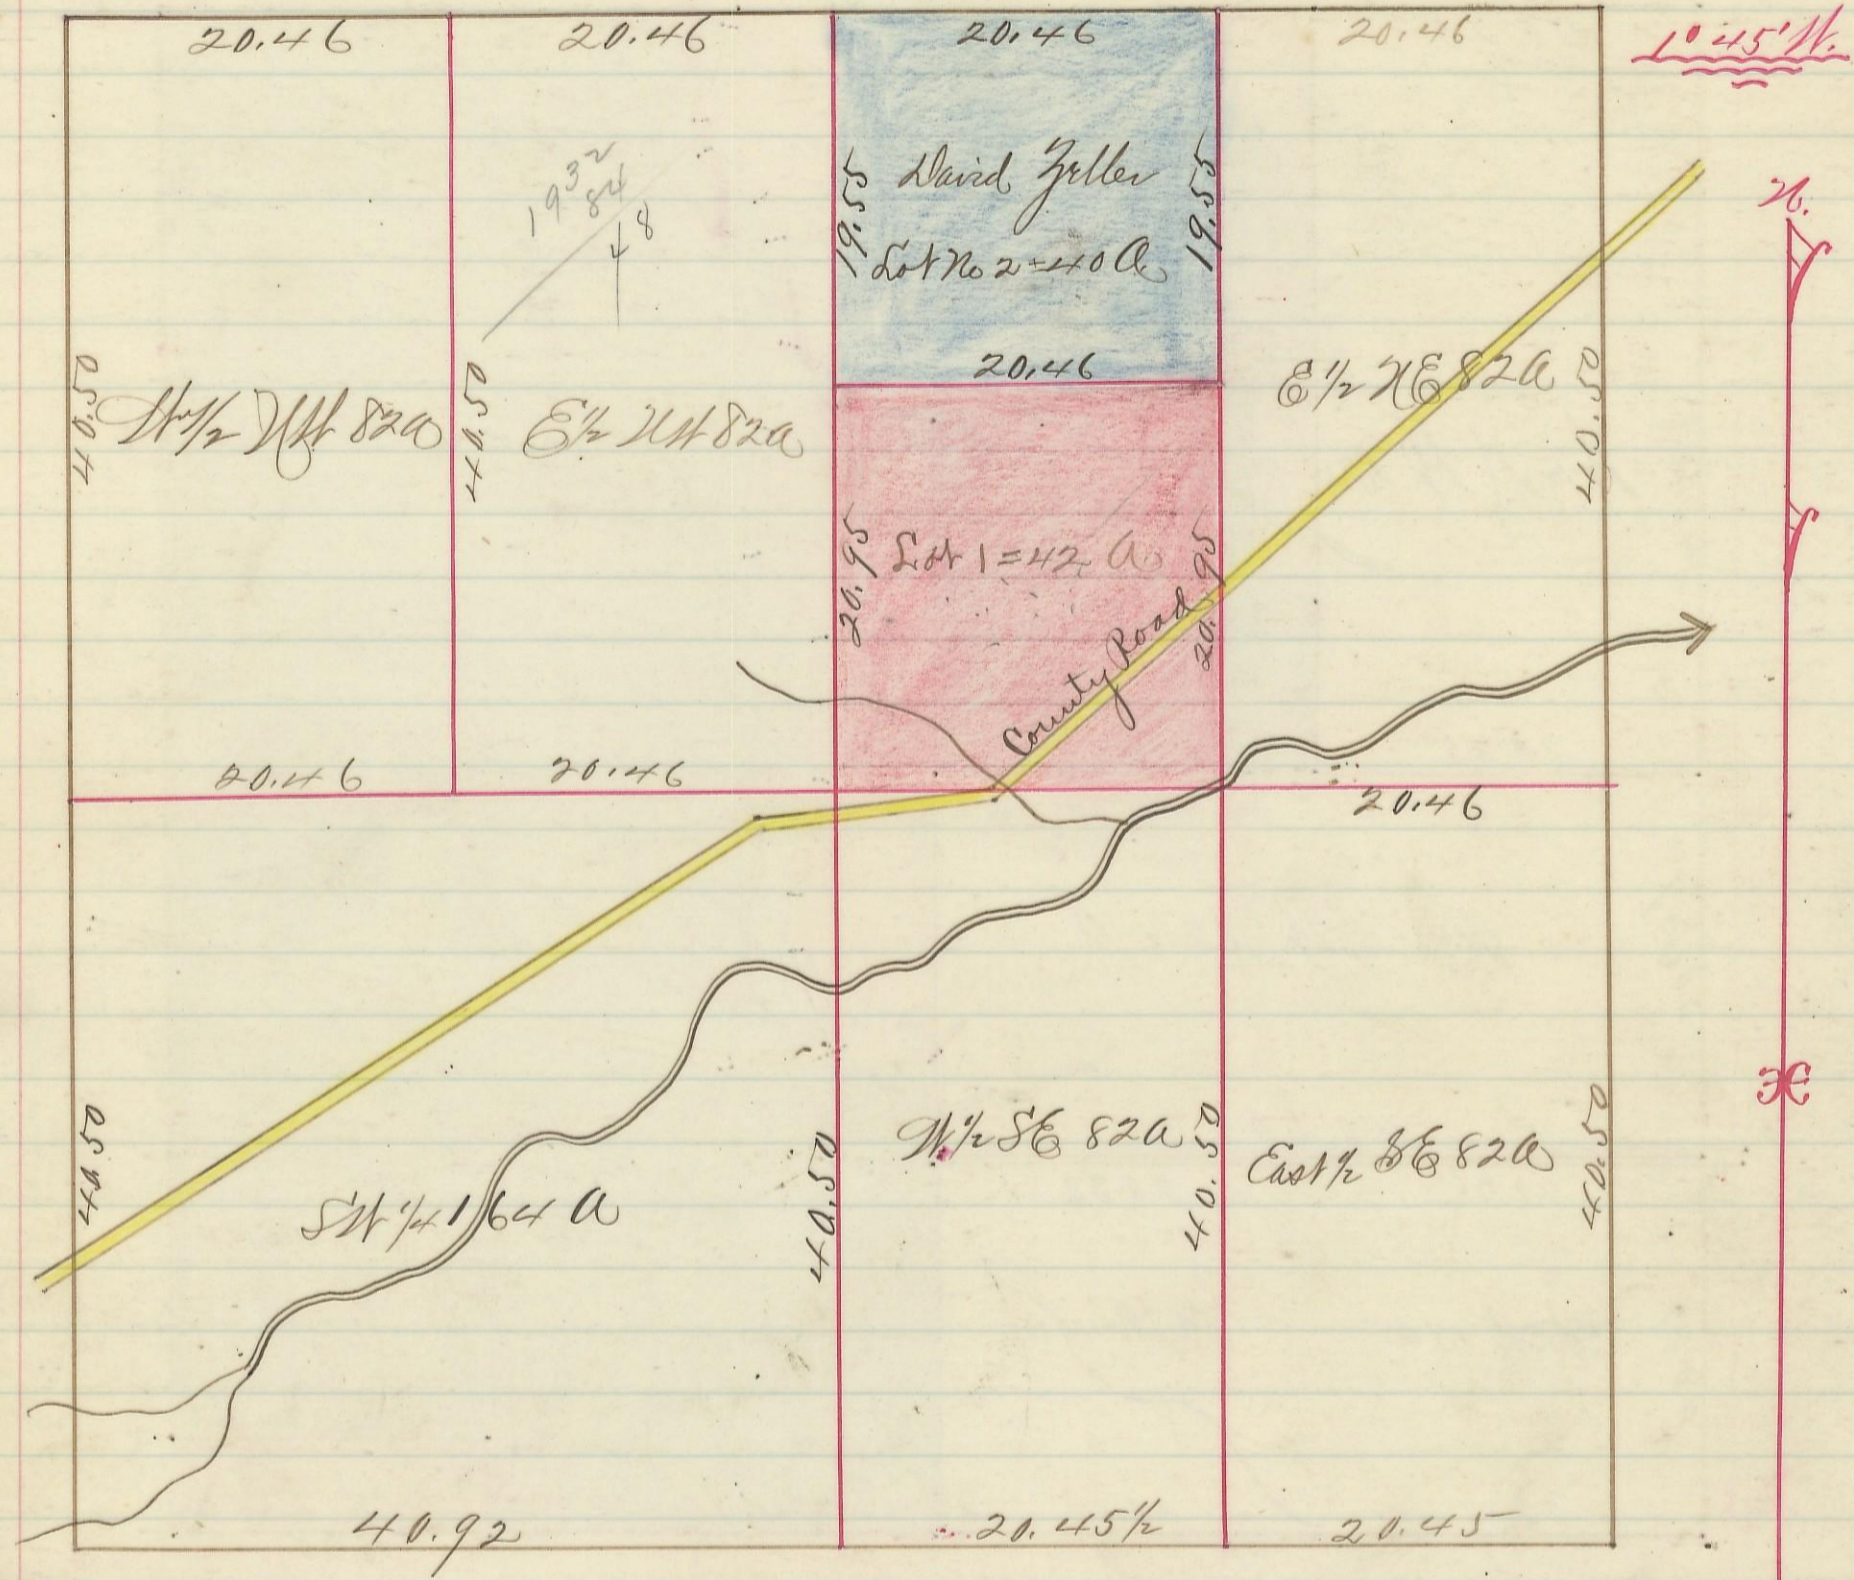 20.46
20.46
20.46
20.46
1° 45' W.
1932
84
48
David Zeller
Lot No 2 = 40 A
19.55
19.55
20.46
N.
40.50
W 1/2 NW 82 a
40.50
E 1/2 NW 82 a
E 1/2 NE 82 a
40.50
20.95
Lot 1 = 42 A
20.95
County Road
20.46
20.46
20.46
40.50
SW 1/4 164 A
40.50
W 1/2 SE 82 a
40.50
East 1/2 SE 82 a
40.50
40.92
20.45 1/2
20.45